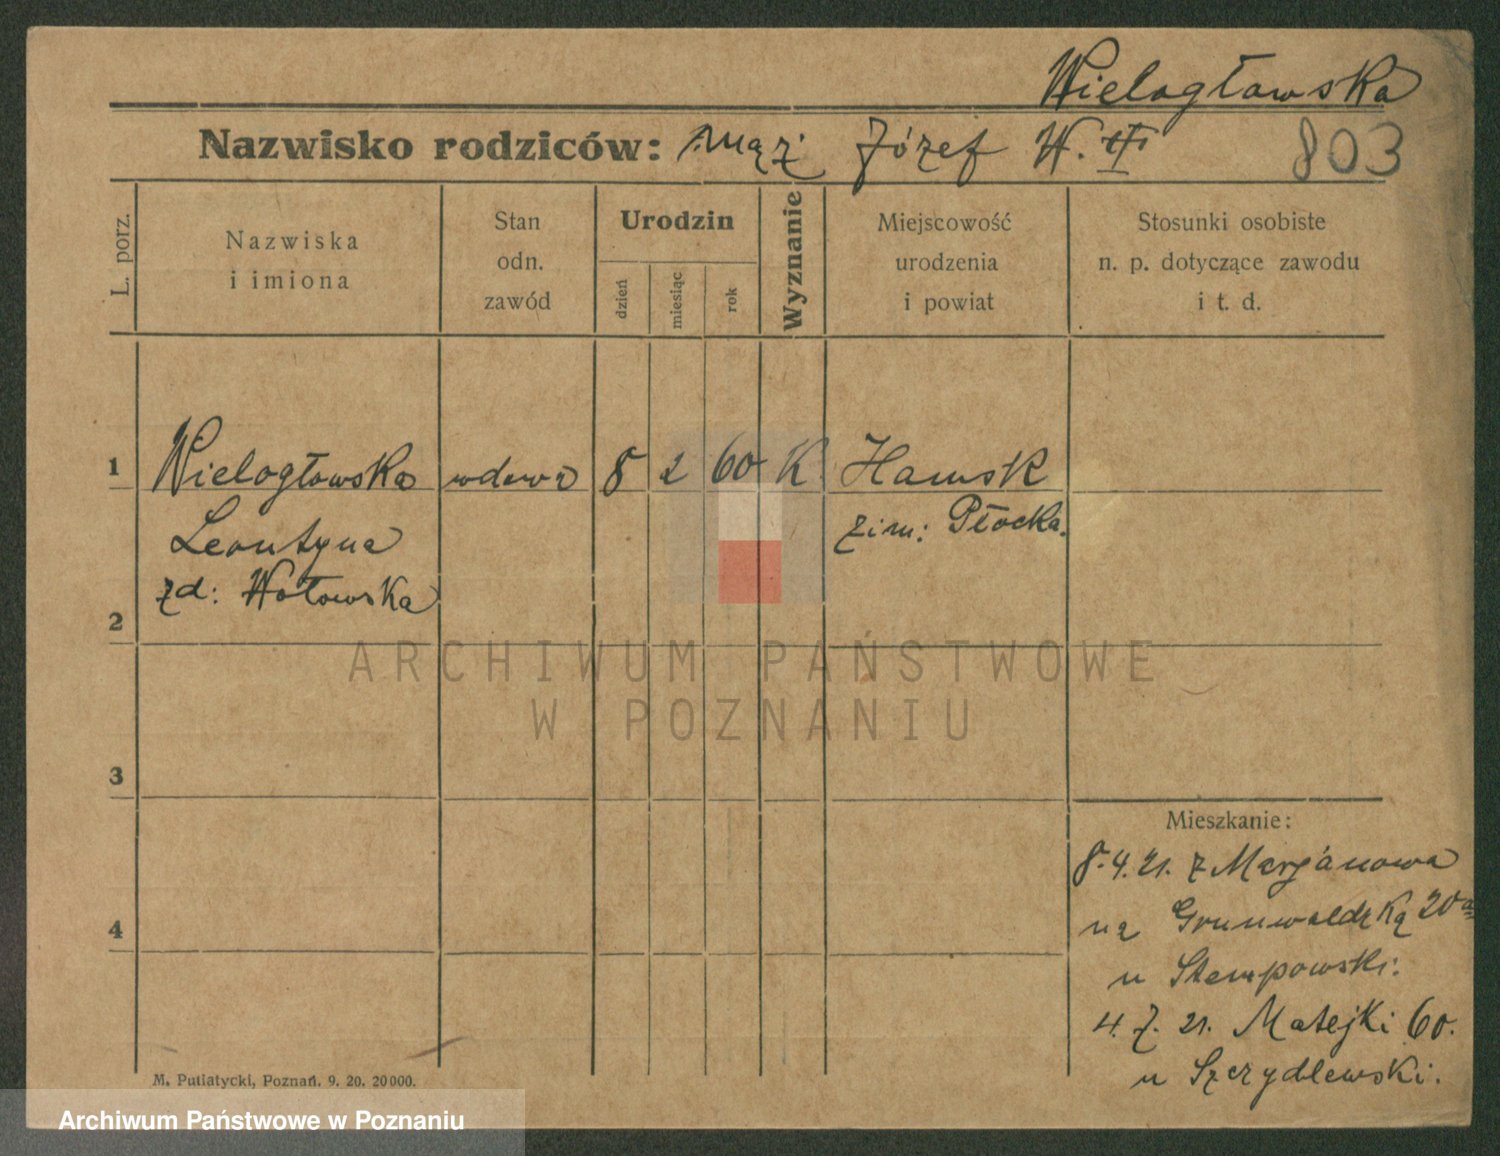 Wielogłowska
Nazwisko rodziców: mąż Józef W. †
803
L. porz.
Nazwiska
i imiona
Stan
odn.
zawód
Urodzin
dzień
miesiąc
rok
Wyznanie
Miejscowość
urodzenia
i powiat
Stosunki osobiste
n. p. dotyczące zawodu
i t. d.
1 Wielogłowska wdowa 8 2 60 K Hamsk
Leontyna zim: Płocka.
zd: Wołowska
2
3
4
Mieszkanie:
8.4.21. z Marjanowa
na Grunwaldzką 20a
u Stempowski.
4. 7. 21. Matejki 60.
u Szczydlewski.
M. Putiatycki, Poznań. 9. 20. 20000.
ARCHIWUM PAŃSTWOWE
W POZNANIU
Archiwum Państwowe w Poznaniu